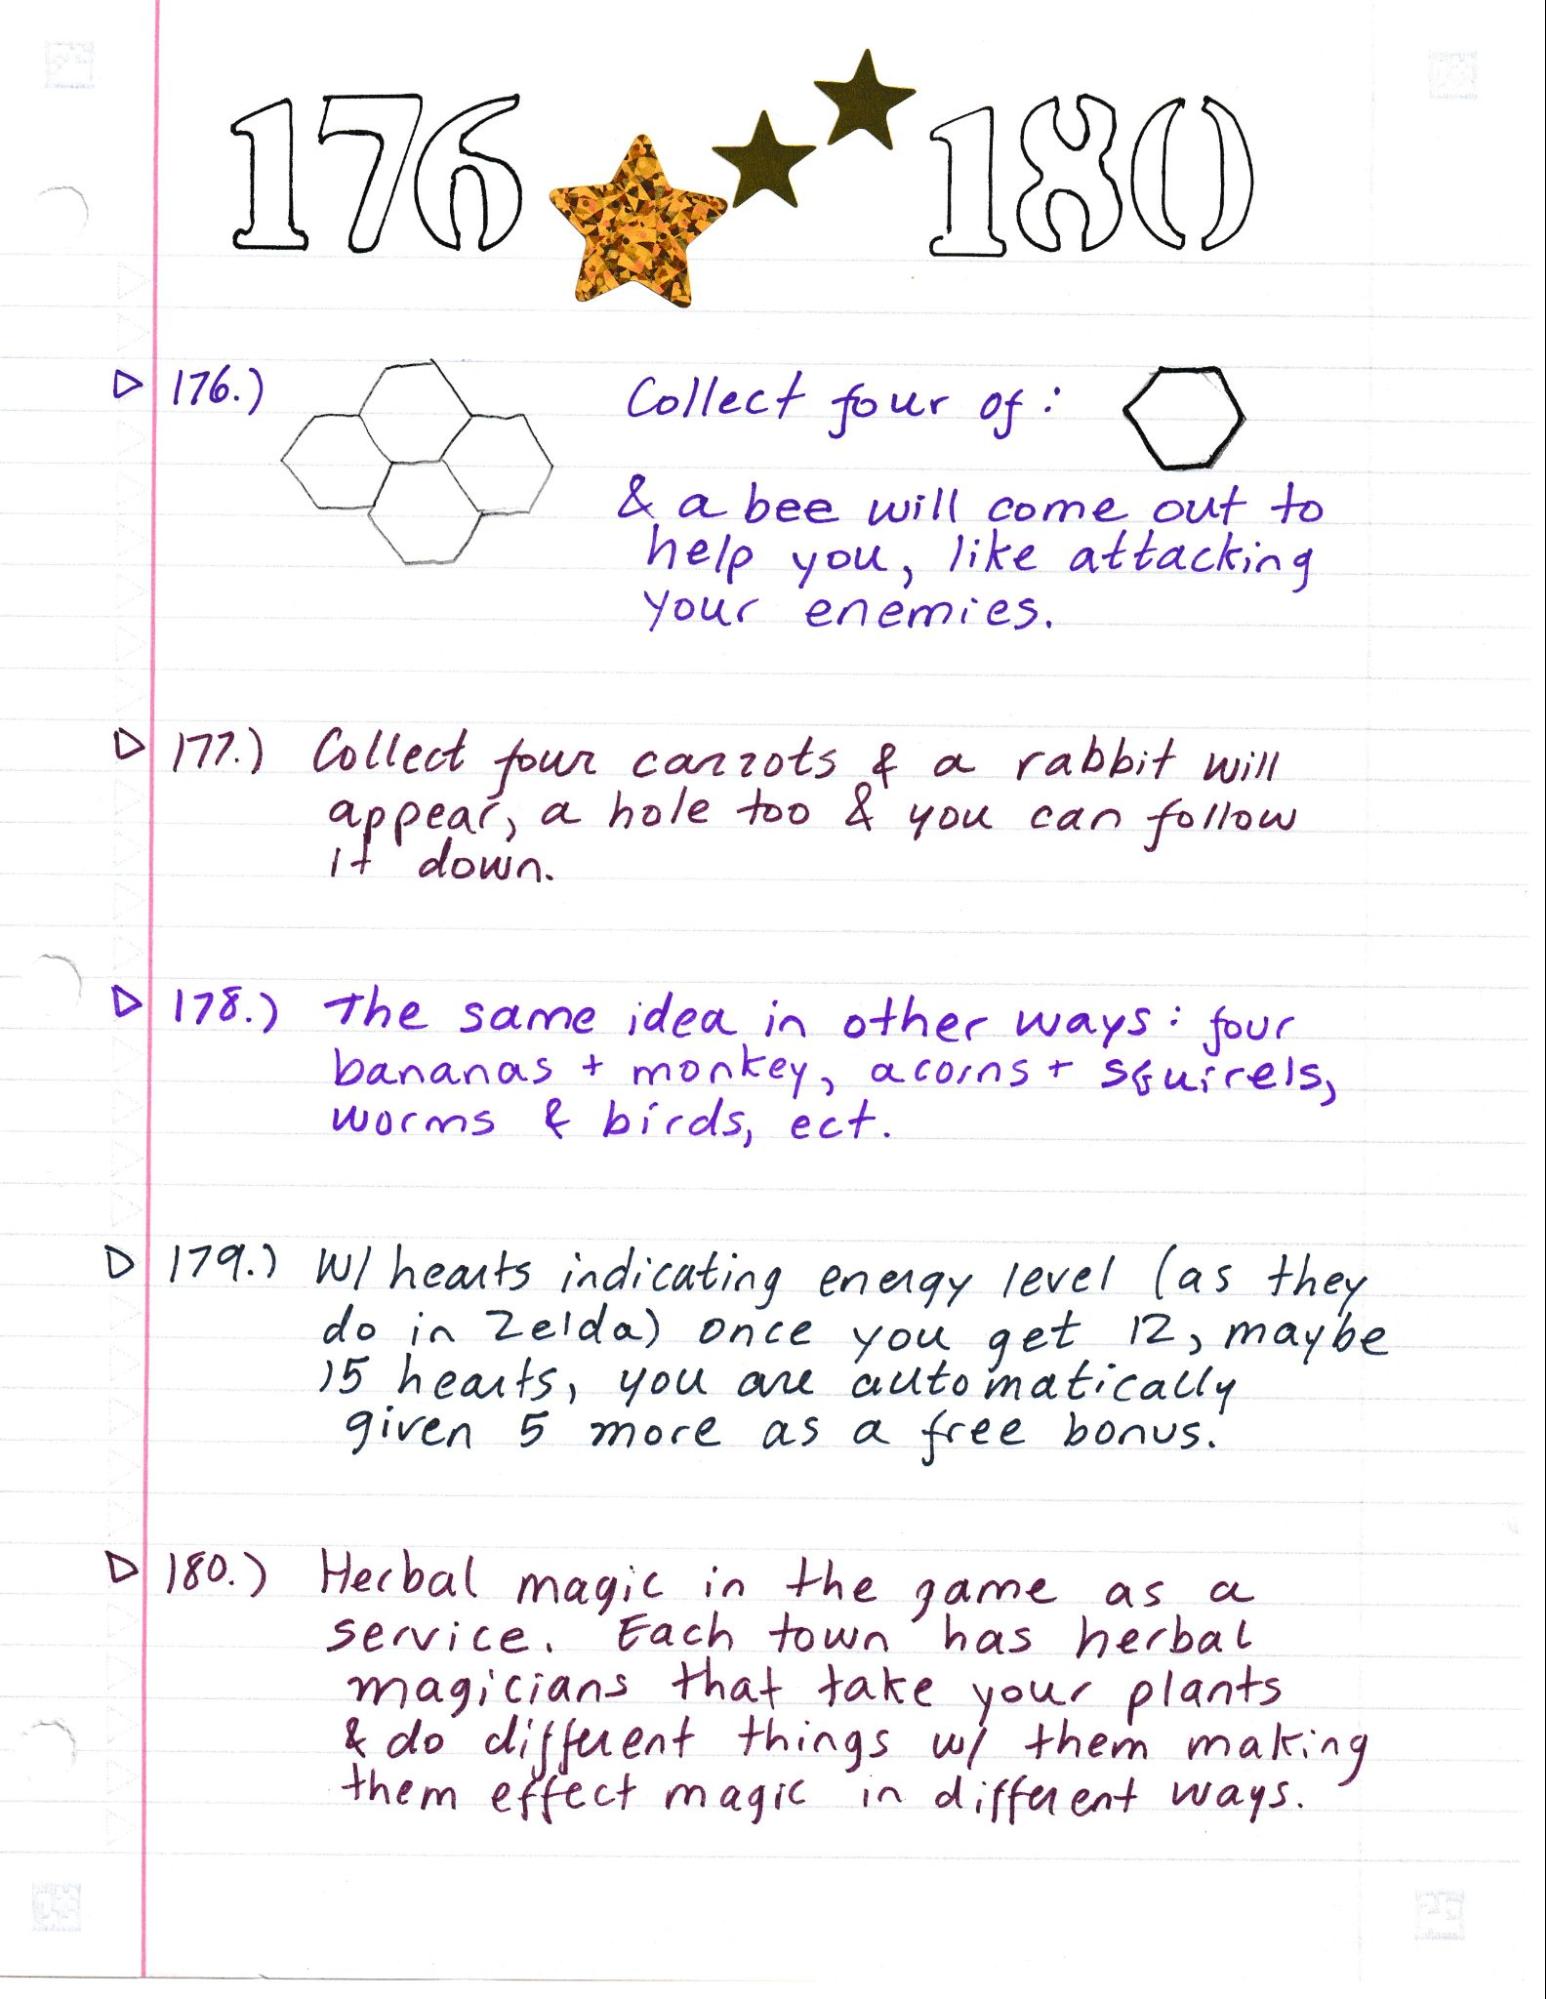 176 180
176.) Collect four of:
& a bee will come out to
help you, like attacking
your enemies.
177.) Collect four carrots & a rabbit will
appear, a hole too & you can follow
it down.
178.) The same idea in other ways: four
bananas + monkey, acorns + squirels,
worms & birds, ect.
179.) W/ hearts indicating energy level (as they
do in Zelda) once you get 12, maybe
15 hearts, you are automatically
given 5 more as a free bonus.
180.) Herbal magic in the game as a
service. Each town has herbal
magicians that take your plants
& do different things w/ them making
them effect magic in different ways.